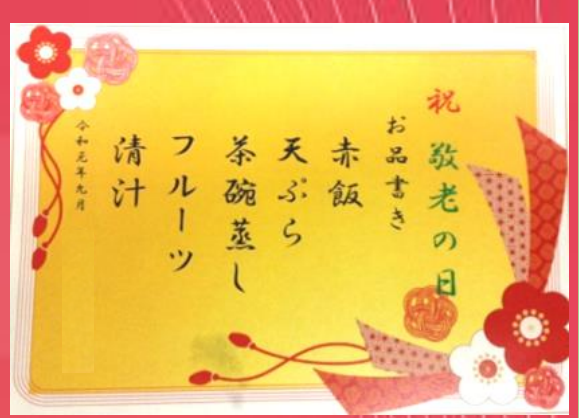 祝 敬老の日
お品書き
赤飯
天ぷら
茶碗蒸し
フルーツ
清汁
令和元年九月